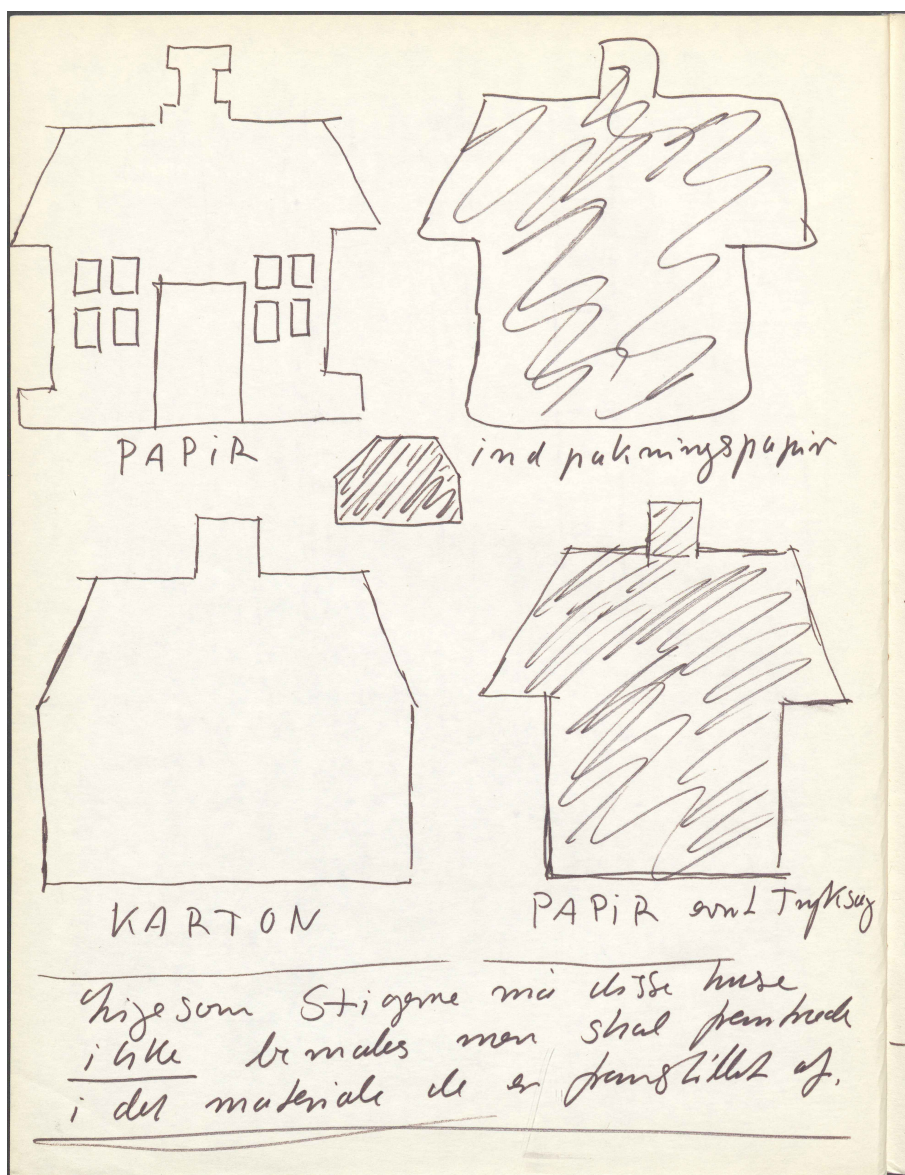 PAPiR
indpakningspapir
KARTON
PAPiR evnt Tryksag
Ligesom Stigerne må disse huse
ikke bemales men skal fremtræde
i det materiale de er fremstillet af.